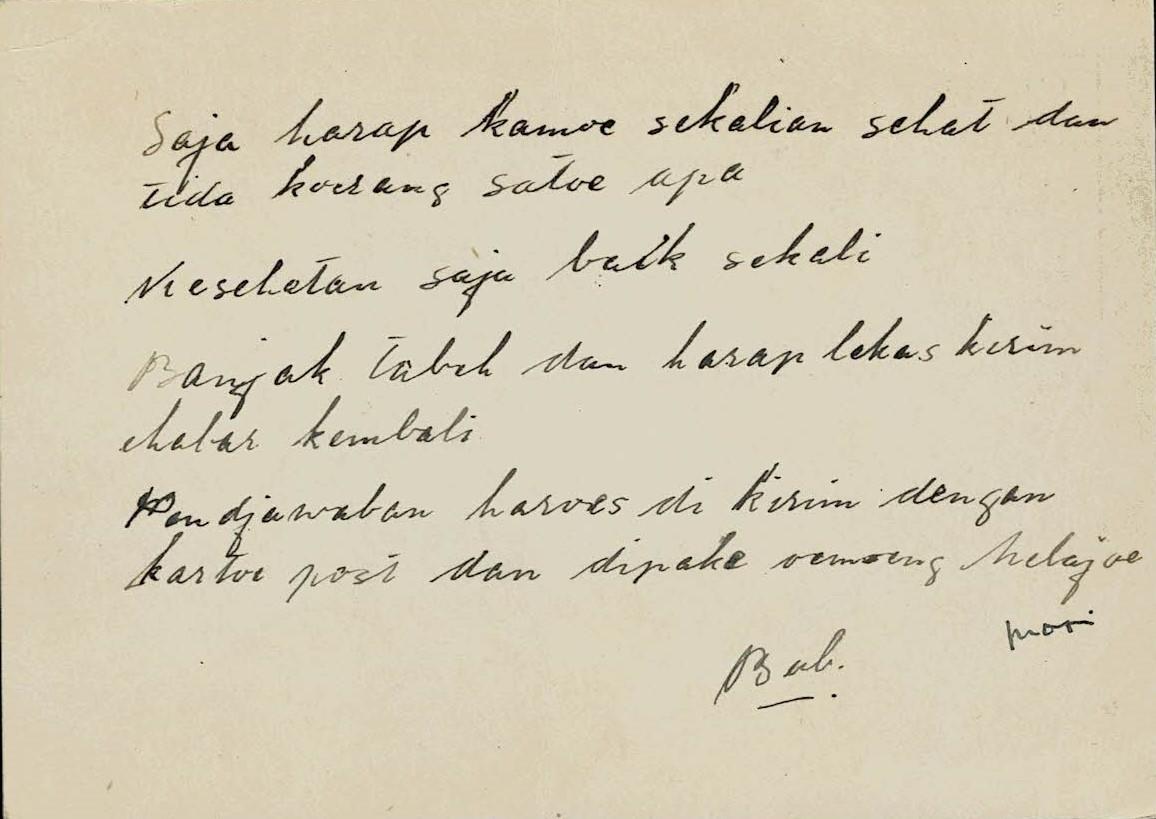 Saja harap kamoe sekalian sehat dan
tida koerang satoe apa
Kesehatan saja baik sekali
Banjak tabeh dan harap lekas kirim
chabar kembali
Pendjawaban haroes di kirim dengan
kartoe post dan dipake oemoeng Melajoe
Bub.